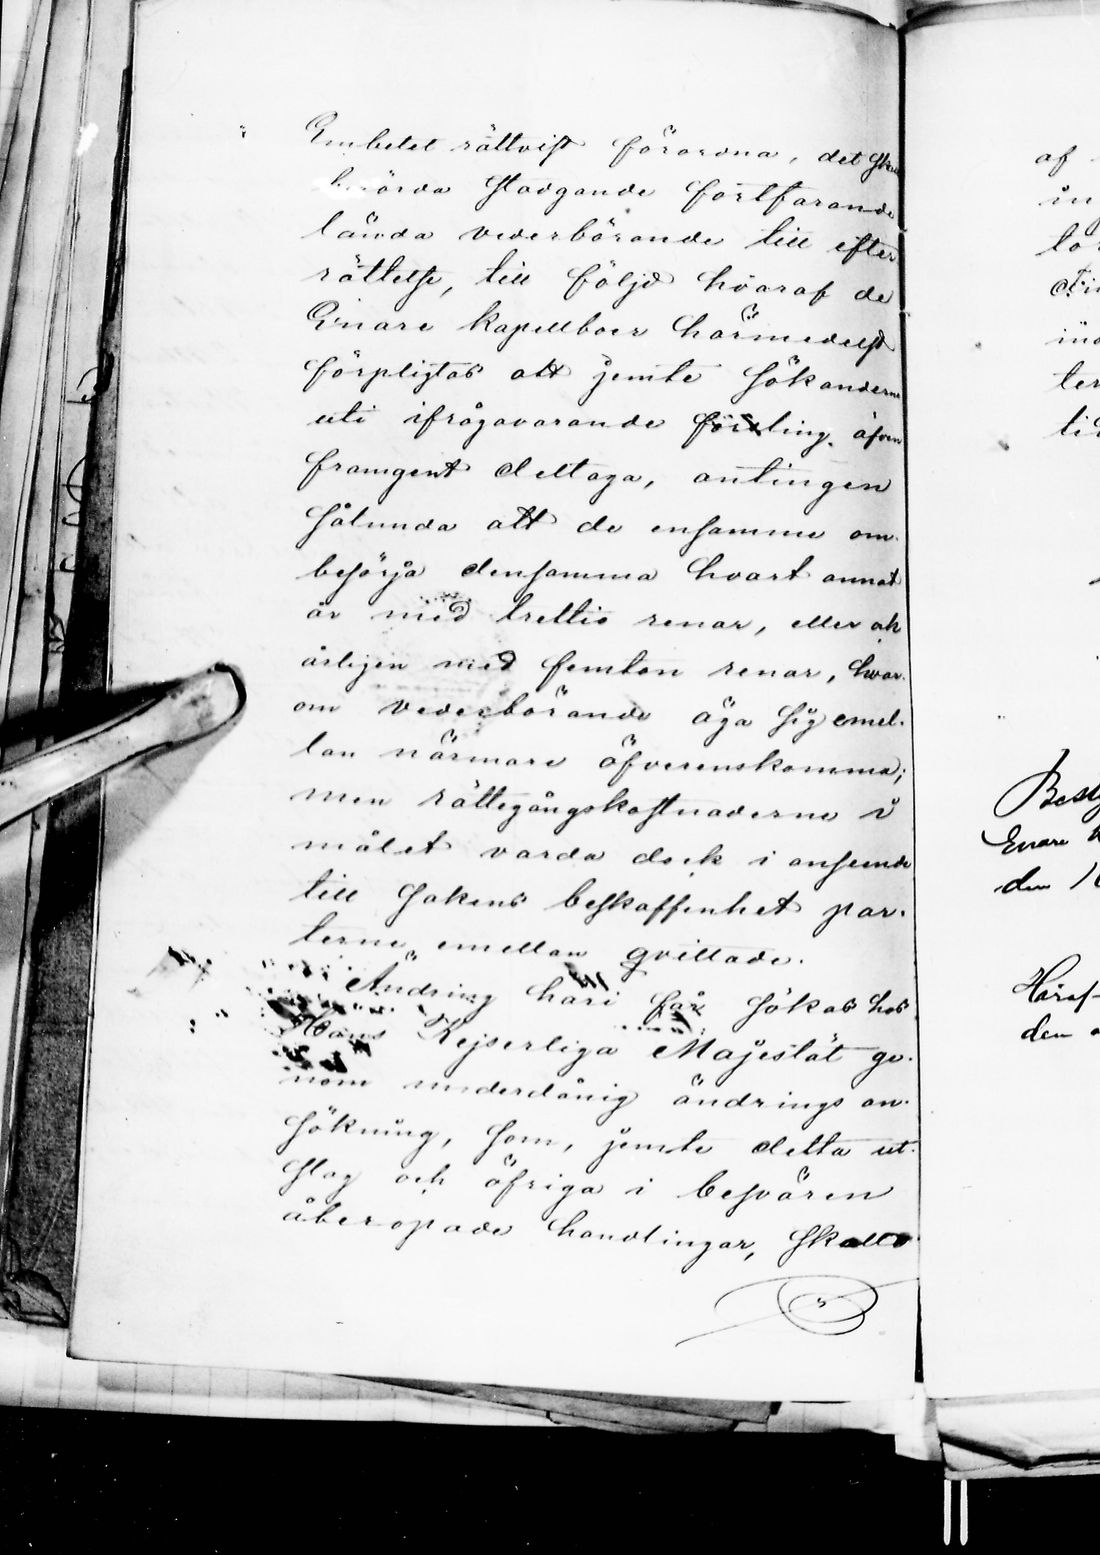 Embetet rättvist förordna, det
berörda stadgande fortfarande
lända vederbörande till efter
rättelse, till följd hvaraf de
Enare kapellboer härmedelst
förpligtas att jemte sökanderne
uti ifrågavarande försling, äfven
framgent deltaga, antingen
sålunda att de ensamme om-
besörja densamma hvart annat
år med trettio renar, eller ock
årligen med femton renar, hvar-
om vederbörande äga sig emel-
lan närmare öfverenskomma;
men rättegångskostnaderne i
målet varda dock i anseende
till sakens beskaffenhet par-
terne emellan qvittade.
Ändring häri får sökas hos
Hans Kejserliga Majestät ge-
nom underdånig ändrings an-
sökning, som, jemte detta ut-
slag och öfriga i besvären
åberopade handlingar, skall
af
in
ter
Enare
den
den